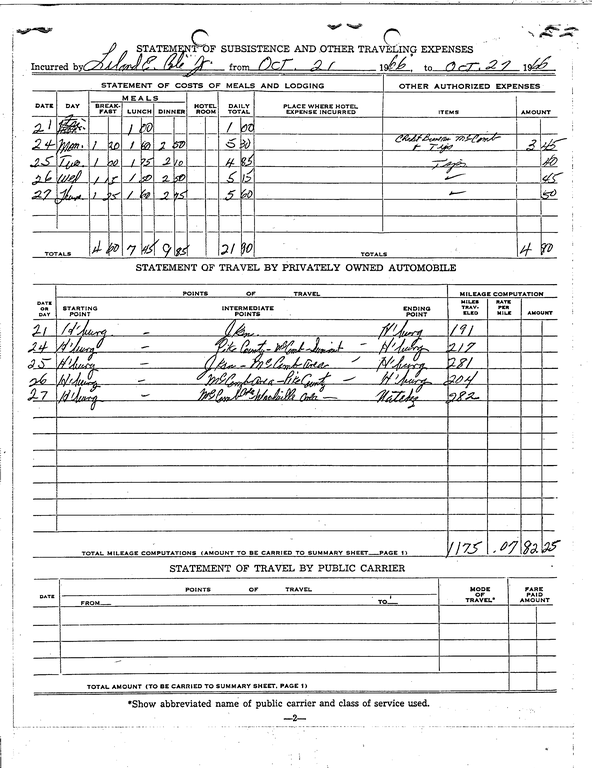 STATEMENT OF SUBSISTENCE AND OTHER TRAVELING EXPENSES
Incurred by Leland E. Cole Jr from Oct. 21 1966, to Oct. 27 1966
STATEMENT OF COSTS OF MEALS AND LODGING OTHER AUTHORIZED EXPENSES
MEALS
DATE DAY BREAK-FAST LUNCH DINNER HOTEL ROOM DAILY TOTAL PLACE WHERE HOTEL EXPENSE INCURRED ITEMS AMOUNT
21 1 00 1 00
24 Mon. 1 20 1 60 2 50 5 30 McComb & Tips 3 45
25 Tue. 1 00 1 75 2 10 4 85 Tips 40
26 Wed 1 15 1 50 2 50 5 15 ✓ 45
27 Thur. 1 25 1 60 2 75 5 60 ✓ 50
TOTALS 4 60 7 45 9 85 21 90 TOTALS 4 80
STATEMENT OF TRAVEL BY PRIVATELY OWNED AUTOMOBILE
POINTS OF TRAVEL MILEAGE COMPUTATION
DATE OR DAY STARTING POINT INTERMEDIATE POINTS ENDING POINT MILES TRAV-ELED RATE PER MILE AMOUNT
21 H'burg - Jkn. H'burg 191
24 H'burg - Pike County - McComb - - H'burg 217
25 H'burg - Jkn - McComb area - H'burg 281
26 H'burg - McComb area - Pike County - H'burg 204
27 H'burg - McComb - Natchez 282
TOTAL MILEAGE COMPUTATIONS (AMOUNT TO BE CARRIED TO SUMMARY SHEET—PAGE 1) 1175 .07 82 25
STATEMENT OF TRAVEL BY PUBLIC CARRIER
DATE POINTS OF TRAVEL MODE OF TRAVEL* FARE PAID AMOUNT
FROM— TO—
TOTAL AMOUNT (TO BE CARRIED TO SUMMARY SHEET, PAGE 1)
*Show abbreviated name of public carrier and class of service used.
—2—